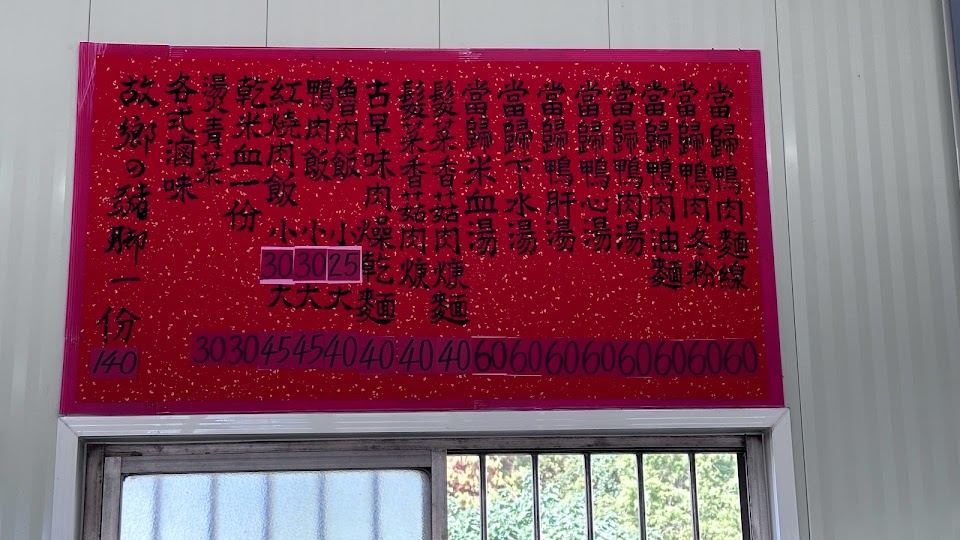 當歸鴨肉麵線 60
當歸鴨肉冬粉 60
當歸鴨肉油麵 60
當歸鴨肉湯 60
當歸鴨心湯 60
當歸鴨肝湯 60
當歸下水湯 60
當歸米血湯 60
髮菜香菇肉焿麵 40
髮菜香菇肉焿 40
古早味肉燥乾麵 40
魯肉飯 小25大40
鴨肉飯 小30大45
紅燒肉飯 小30大45
乾米血一份 30
燙青菜 30
各式滷味
故鄉の豬脚一份 140